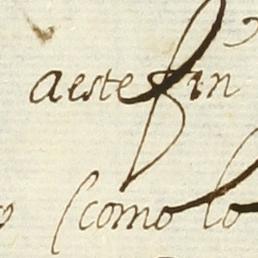 aeste fin
(como lo